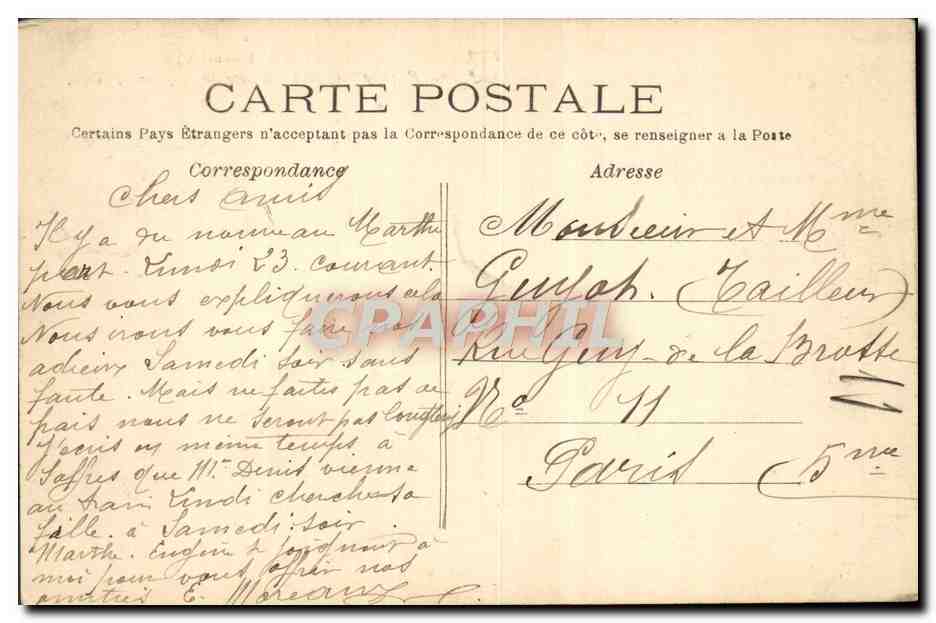 CARTE POSTALE
Certains Pays Étrangers n'acceptant pas la Correspondance de ce côté, se renseigner a la Poste
Correspondance
Chers amis
Il y a du nouveau Marthe
part Lundi 23. courant.
Nous vous expliquerons cela
Nous irons vous faire nos
adieux Samedi soir sans
faute. Mais ne faites pas de
frais nous ne seront pas longtemps
J'écris en même temps à
Saffres que Mr Denis vienne
au train Lundi chercher sa
fille. à Samedi soir
Marthe. Eugène se joignent à
moi pour vous offrir nos
amitiés E. Moreaux
Adresse
Monsieur et Mme
Guyot. (Tailleur)
Rue Guy-de la Brosse
No 11
Paris 5me
CPAPHIL